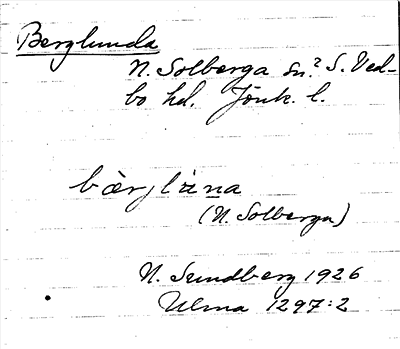 Berglunda
N. Solberga sn? S. Ved-
bo hd. Jönk. l.
bærjlana
(N. Solberga)
N. Sundberg 1926
Ulma 1297:2